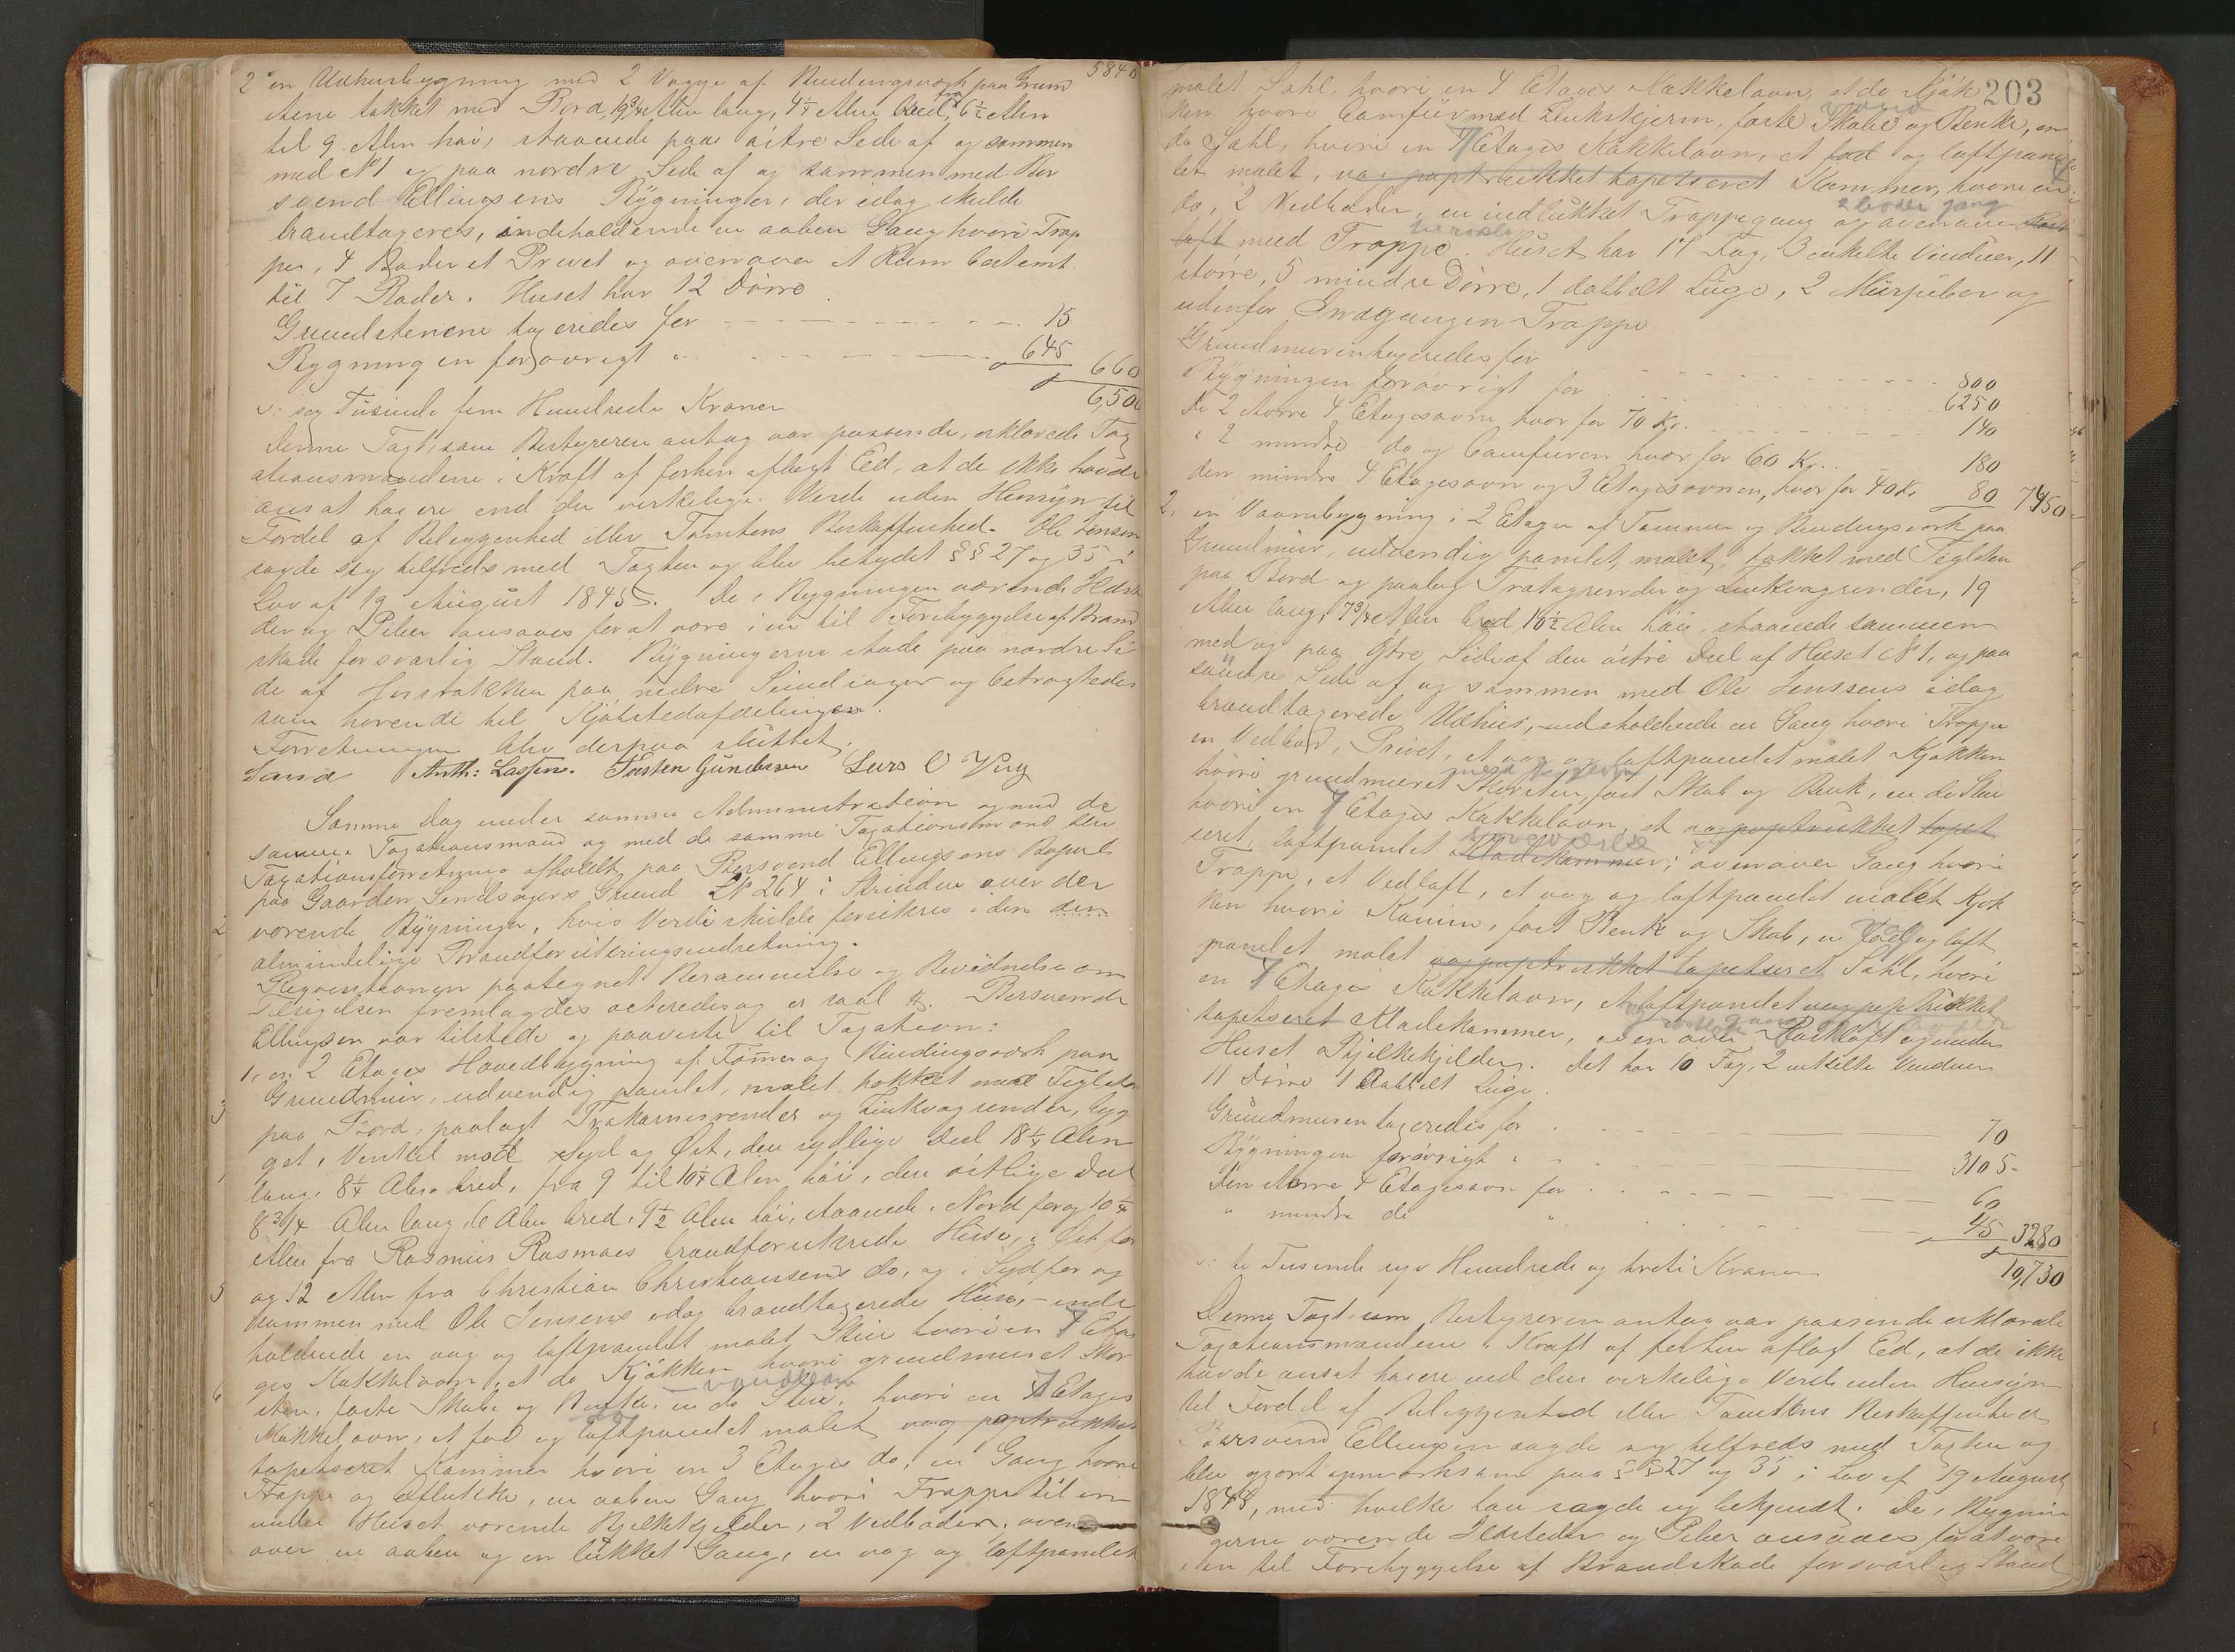 5840
2 en Udhusbygning med 2 Vægge af Bindingsværk paa Grund
stene tækket med Bord, 19 3/4 Alen lang, 4 1/4 Alen bred, fra 6 1/2 Alen
til 9 Alen høi, staaende paa østre Side af og sammen
med No 1 og paa nordre Side af og sammen med Ber
svend Ellingsens Bygninger, der idag skulde
brandtaxeres, indeholdende en aaben Gang hvori Trap
pe, 4 Boder et Privet og ovenover et Rum bestemt
til 7 Boder. Huset har 12 Dörre.
Grundstenene taxeredes for 15
Bygningen forövrigt " 645 660
6,500
o: sex Tüsinde fem Hundrede Kroner
Denne Taxt, som Bestyreren antog var passende, erklærede Tax
ationsmændene i Kraft af forhen aflagt Ed, at de ikke havde
ansat höiere end den virkelige Værdi uden Hensÿn til
Fordel af Beliggenhed eller Tomtens Beskaffenhed. Ole Jensen
sagde sig tilfreds med Taxten og blev betydet §§ 27 og 35 i
Lov af 19 August 1845. De i Bygningen værende Ildste
der og Piber ansaaes for at være i en til Forebyggelse af Brand
skade forsvarlig Stand. Bÿgningerne stode paa nordre Si
de af
paa nedre
og betragtedes
som hörende til Kjöbstedafdelingen.
Forretningen blev derpaa slüttet.
Sand Anth: Lassen. Torsten Gundersen Lars O Vig
Samme Dag under samme Administration og med de
samme Taxationsmænd og med de samme Taxationsmænd blev
Taxationsforretning afholdt paa Bersvend Ellingsens Bopæl
paa Gaarden
Grund L No 264 i Strinden over der
værende Bÿgninger, hvis Værdi skulde forsikres i den
almindelige Brandforsikringsindretning.
Reqvisitionen paategnet Berammelse og Bevidnelse om
Tilsigelsen fremlagdes acteredes og er saal. Bersvend
Ellingsen var tilstede og paaviste til Taxation:
1, en 2 Etages Hovedbÿgning af Tömmer og Bindingsværk paa
Grundmür, udvendig panelt, malet, tækket med Teglsten
paa Bord, paalagt
og Zinkvagrender, byg
get i Vinkel mod Syd og Öst, den sydlige Deel 18 1/4 Alen
lang, 8 1/4 Alen bred, fra 9 til 10 1/4 Alen höi, den östlige Deel
8 3/4 Alen lang, 6 Alen bred, 9 1/2 Alen höi, staaende i Nord for og 10 1/4
Alen fra Rasmüs
brandforsikrede Hüse, i Öst for
og 12 Alen fra Christian Christiansens do, og i Syd for og
sammen med Ole Jensens idag brandtaxerede Huse, inde
holdende en væg og loftpanelet malet Stüe hvori en 4 Eta
ges Kakkelovn, et do Kjökken hvori grundmuret Skor
sten, faste Skabe og Bænke, en do Stüe, hvori en 4 Etages
Kakkelovn, et fod og loftpanelet malet væg paptrukket
tapetseret Kammer hvori en 3 Etages do, en Gang hvori
Trappe og Aflukke, en aaben Gang hvori Trappe til en
under Huset værende Bjelkekjelder, 2 Vedboder, oven
over en aaben og en lükket Gang, en væg og loftpanelet
203
malet Sahl, hvori en 4 Etages Kakkelovn, et do Kjök
ken hvori Camfür med Zinkskjerm, faste Skabe og Bænke, en
do Sahl, hvori en 4 Etages Kakkelovn, et fod og loftpane
let malet, væg paptrukket tapetseret Kammer, hvori en
do, 2 Vedboder, en indlükket Trappegang og ovenover
2 boder gang
loft med Trappe. Huset har 17 Fag, 3 enkelte Vinduer, 11
större, 5 mindre Dörre, 1 dobbelt Lüge, 2 Mürpiber og
udenfor Indgangen Trappe
Grundmuren taxeredes for 800
Bÿgningen forövrigt for 6250
De 2 större 4 Etagesovne hver for 70 Kr. 140
" 2 mindre do og Camfuren hver for 60 Kr. 180
den mindre 4 Etagesovn og 3 Etagesovnen, hver for 40 K. 80 7450
2, en Vaanebygning i 2 Etager af Tømmer og Bindingsværk paa
Grundmür, udvendig panelet, malet, tækket med Teglsten
paa Bord og paalagt Trætagrender og Zinkvagrender, 19
Alen lang, 7 3/4 Alen bred, 10 1/2 Alen höi, staaende sammen
med og paa östre Side af den östre Deel af Huset No 1, og paa
söndre Side af og sammen med Ole Jenssens idag
brandtaxerede Udhus, indeholdende en Gang hvori Trappe
en Vedbod, Privet, et væg og loftpanelet malet Kjökken
hvori grundmuret Skorsten, fast Skab og Bænk, en do Stue
hvori en 4 Etages Kakkelovn, et væg paptrukket tapet
seret, loftpanelet Klædekammer; ovenover Gang hvori
Trappe, et Vedloft, et væg og loftpanelet malet Kjök
ken hvori Kamin, fast Bænk og Skab, en fod og loft
panelet malet væg paptrukket tapetseret Sahl, hvori
en 4 Etages Kakkelovn, et loftpanelet væg paptrükket
tapetseret Klædekammer, ovenover Mörkloft og under
Huset Bjelkekjelder. Det har 10 Fag, 2 enkelte Vinduer
11 Dörre 1 dobbelt Lüge.
Grundmuren taxeredes for 70
Bÿgningen forövrigt " 3105
Den större 4 Etagesovn for 60
" mindre do " 45 3280
10,730
o: ti Tusinde syv Hundrede og treti Kroner
Denne Taxt som Bestyreren antog var passende erklærede
Taxationsmændene i Kraft af forhen aflagt Ed, at de ikke
havde ansat höiere end den virkelige Værdi uden Hensÿn
til Fordel af Beliggenhed eller Tomtens Beskaffenhed
Bersvend Ellingsen sagde sig tilfreds med Taxten og
blev gjort opmærksom paa §§ 27 og 35 i Lov af 19 August
1845, med hvilke han sagde sig bekjendt. De i Bygnin
gerne værende Ildsteder og Piber ansaaes for at være
i en til Forebyggelse af Brandskade forsvarlig Stand